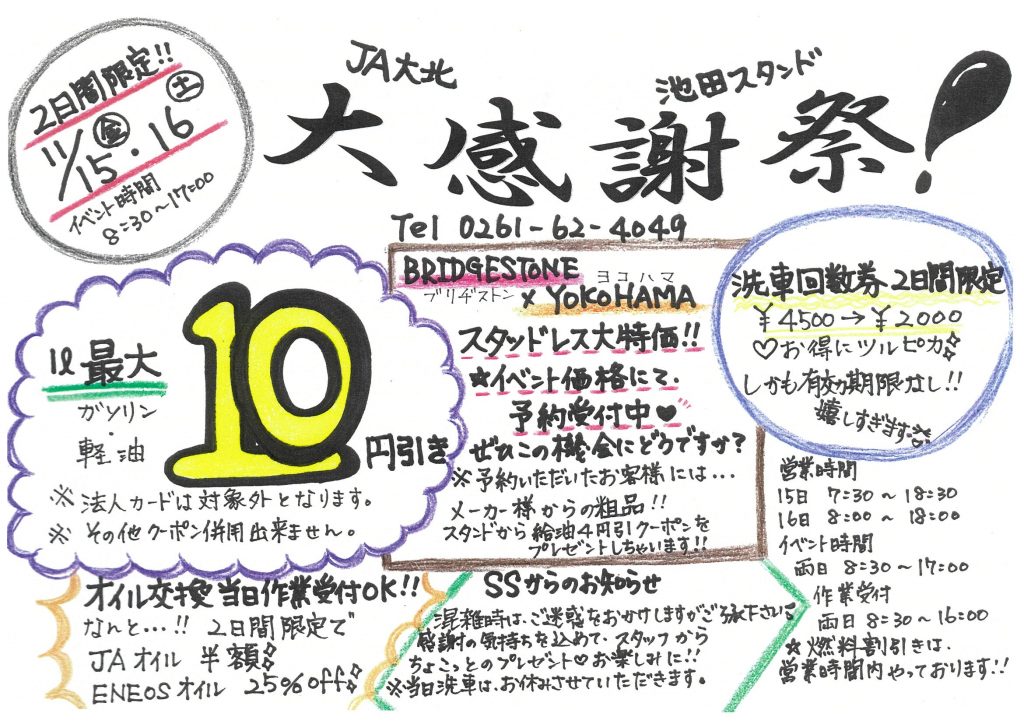 2日間限定!!
11/15㊎・16㊏
イベント時間
8:30〜17:00
JA大北
池田スタンド
大感謝祭!
Tel 0261-62-4049
1ℓ最大
ガソリン
・
軽油
10
円引き
※法人カードは対象外となります。
※その他クーポン併用出来ません。
BRIDGESTONE
ブリヂストン
ヨコハマ
×YOKOHAMA
スタッドレス大特価!!
☆イベント価格にて、
予約受付中♥
ぜひこの機会にどうですか?
※予約いただいたお客様には...
メーカー様からの粗品!!
スタンドから給油4円引クーポンを
プレゼントしちゃいます!!
洗車回数券2日間限定
¥4500→¥2000
♡お得にツルピカ
しかも有効期限なし!!
嬉しすぎます
営業時間
15日 7:30〜18:30
16日 8:00〜18:00
イベント時間
両日 8:30〜17:00
作業受付
両日 8:30〜16:00
☆燃料割引きは、
営業時間内やっております!!
オイル交換当日作業受付OK!!
なんと...!! 2日間限定で
JAオイル 半額
ENEOSオイル 25%off
SSからのお知らせ
混雑時は、ご迷惑をおかけしますがご了承下さい
感謝の気持ちを込めて、スタッフから
ちょこっとのプレゼント♡お楽しみに!!
※当日洗車は、お休みさせていただきます。